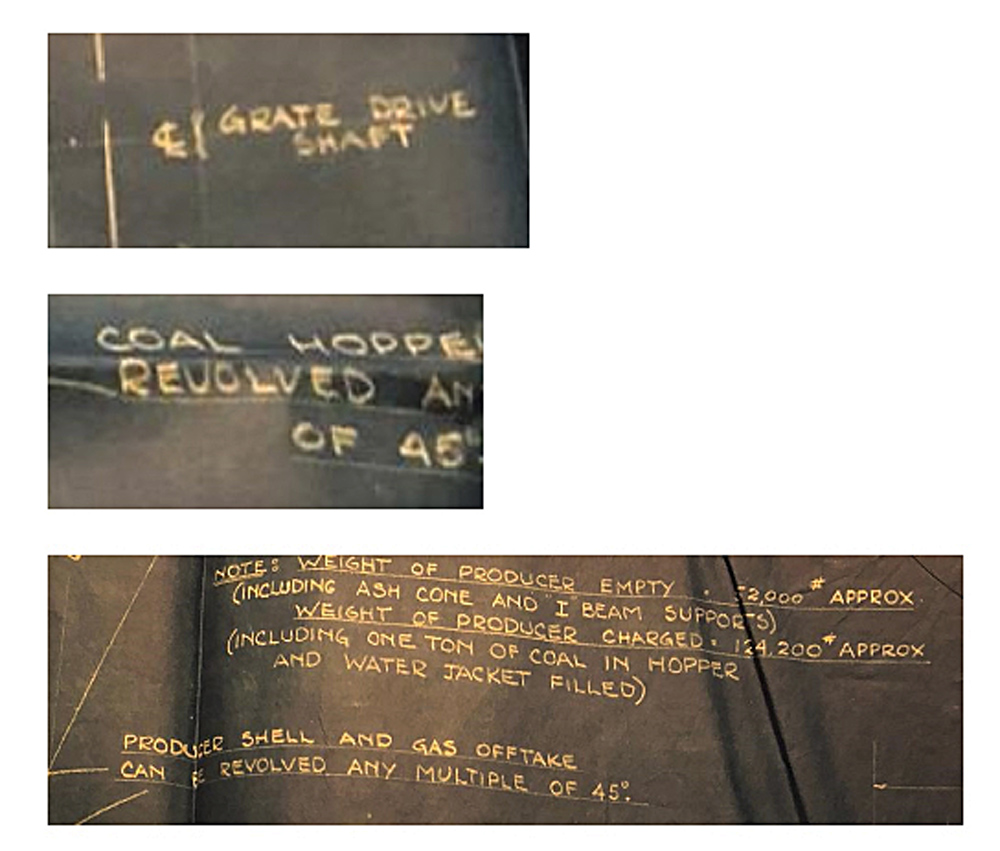 ℄ { GRATE DRIVE
SHAFT
COAL HOPPE
REVOLVED AN
OF 45°
NOTE: WEIGHT OF PRODUCER EMPTY : 52,000# APPROX.
(INCLUDING ASH CONE AND "I" BEAM SUPPORTS)
WEIGHT OF PRODUCER CHARGED : 124,200# APPROX
(INCLUDING ONE TON OF COAL IN HOPPER
AND WATER JACKET FILLED)
PRODUCER SHELL AND GAS OFFTAKE
CAN BE REVOLVED ANY MULTIPLE OF 45°.